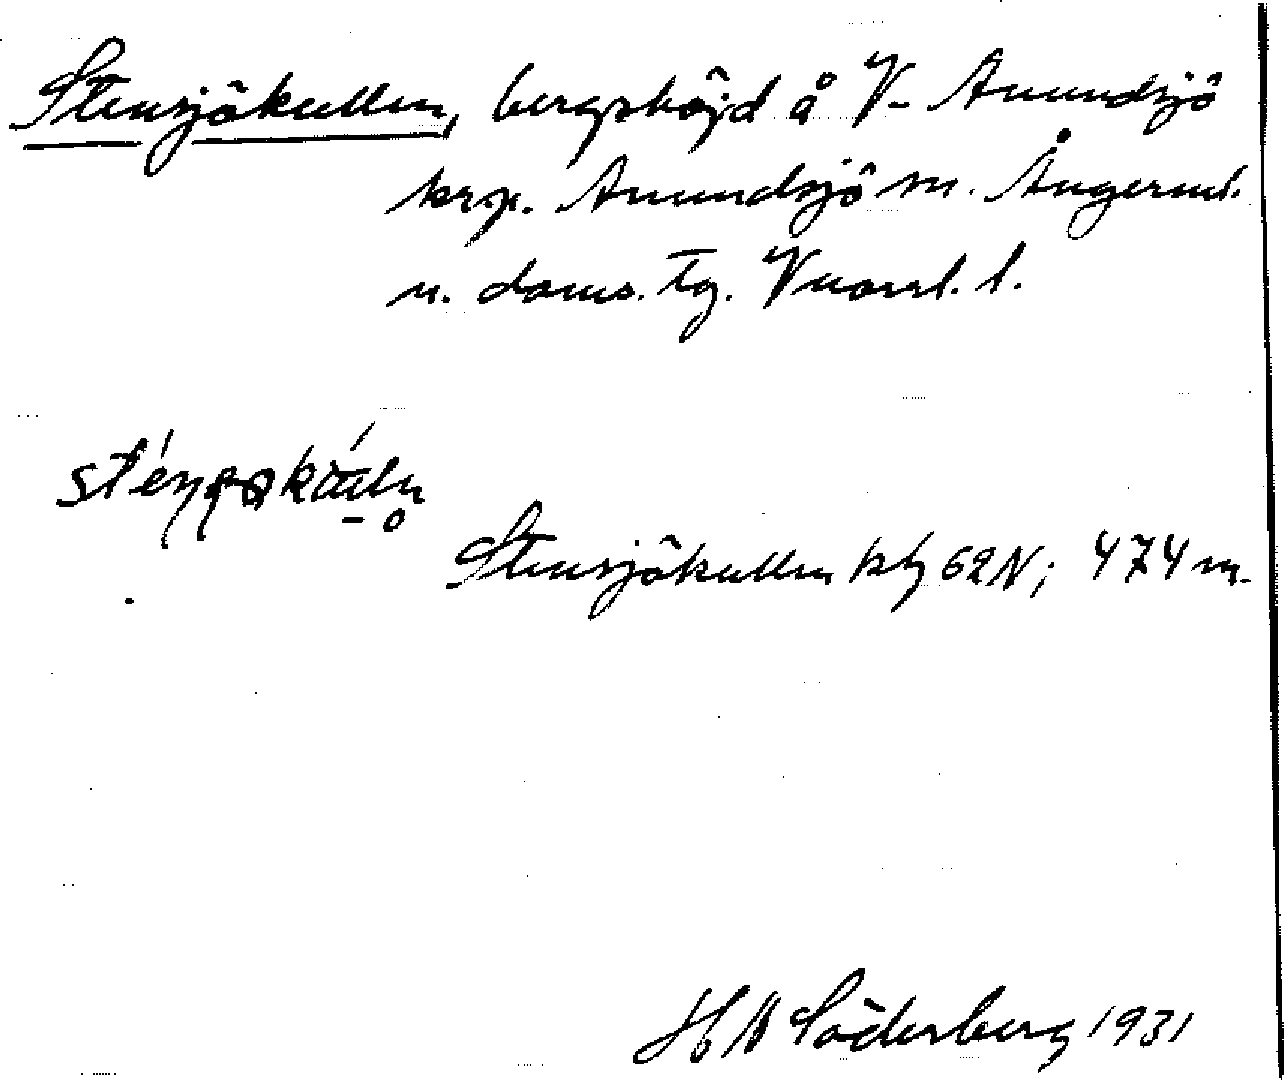 Stensjökullen, bergshöjd å V. Anundsjö
krp. Anundsjö sn. Ångerml.
n. doms. tg. Vnorrl. l.
Stensjökullen kbl 62N; 474 m.
H Söderberg 1931